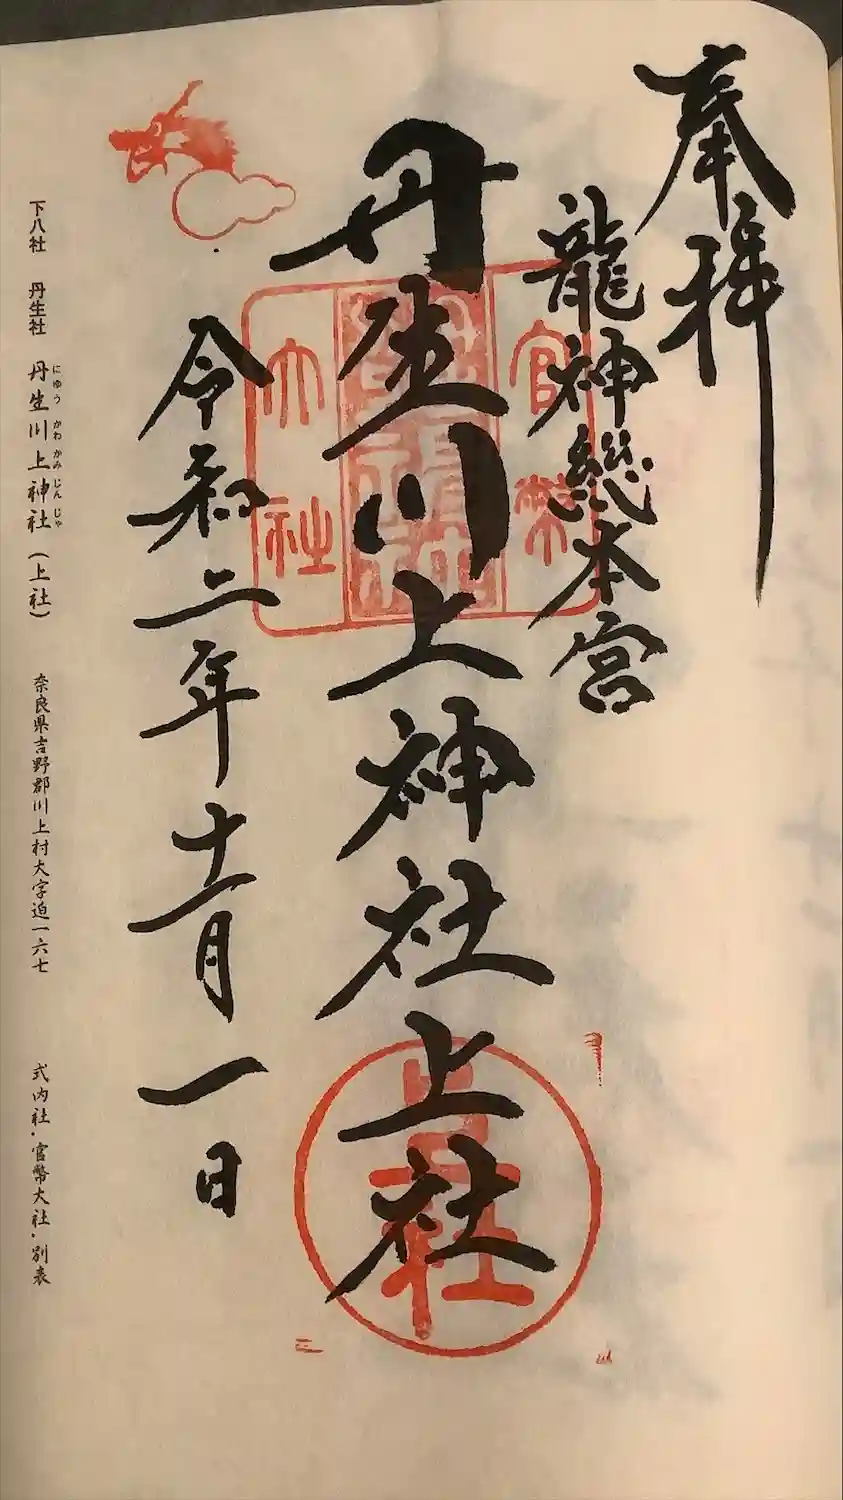 奉拝
龍神総本宮
官幣
大社
丹生川上神社上社
上社
令和二年十一月一日
下八社 丹生社 丹生川上神社(上社) 奈良県吉野郡川上村大字迫一六七 式内社・官幣大社・別表
にゅう かわ かみ じん じゃ